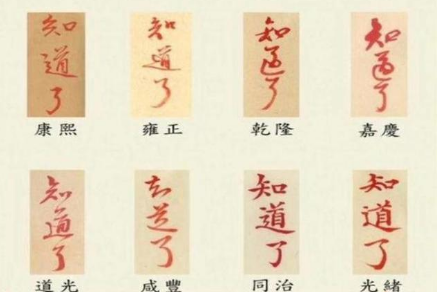 知道了
知道了
知道了
知道了
康熙
雍正
乾隆
嘉慶
知道了
知道了
知道了
知道了
道光
咸豐
同治
光緒